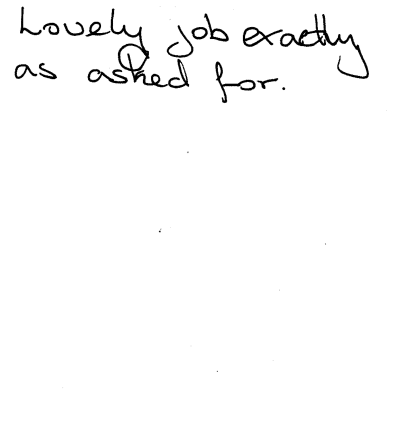 Lovely job exactly
as asked for.